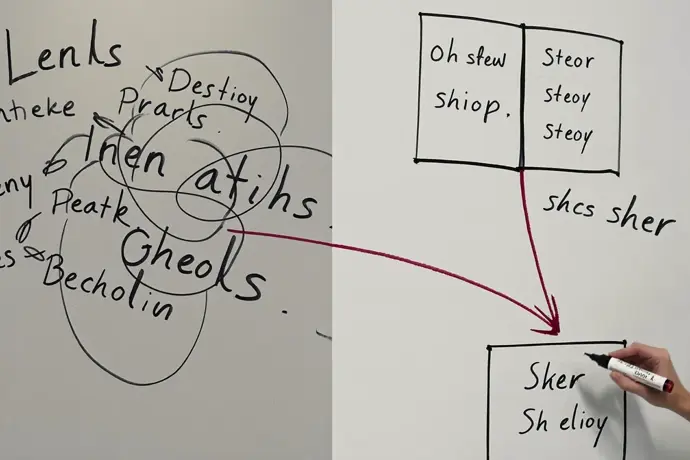 Lenks
Destioy
Prarts.
ntieke
Inen
atihs.
eny
Peatk
Gheols.
es
Becholin
Oh stew
shiop.
Steor
steoy
steoy
shcs sher
Sker
Sh elioy